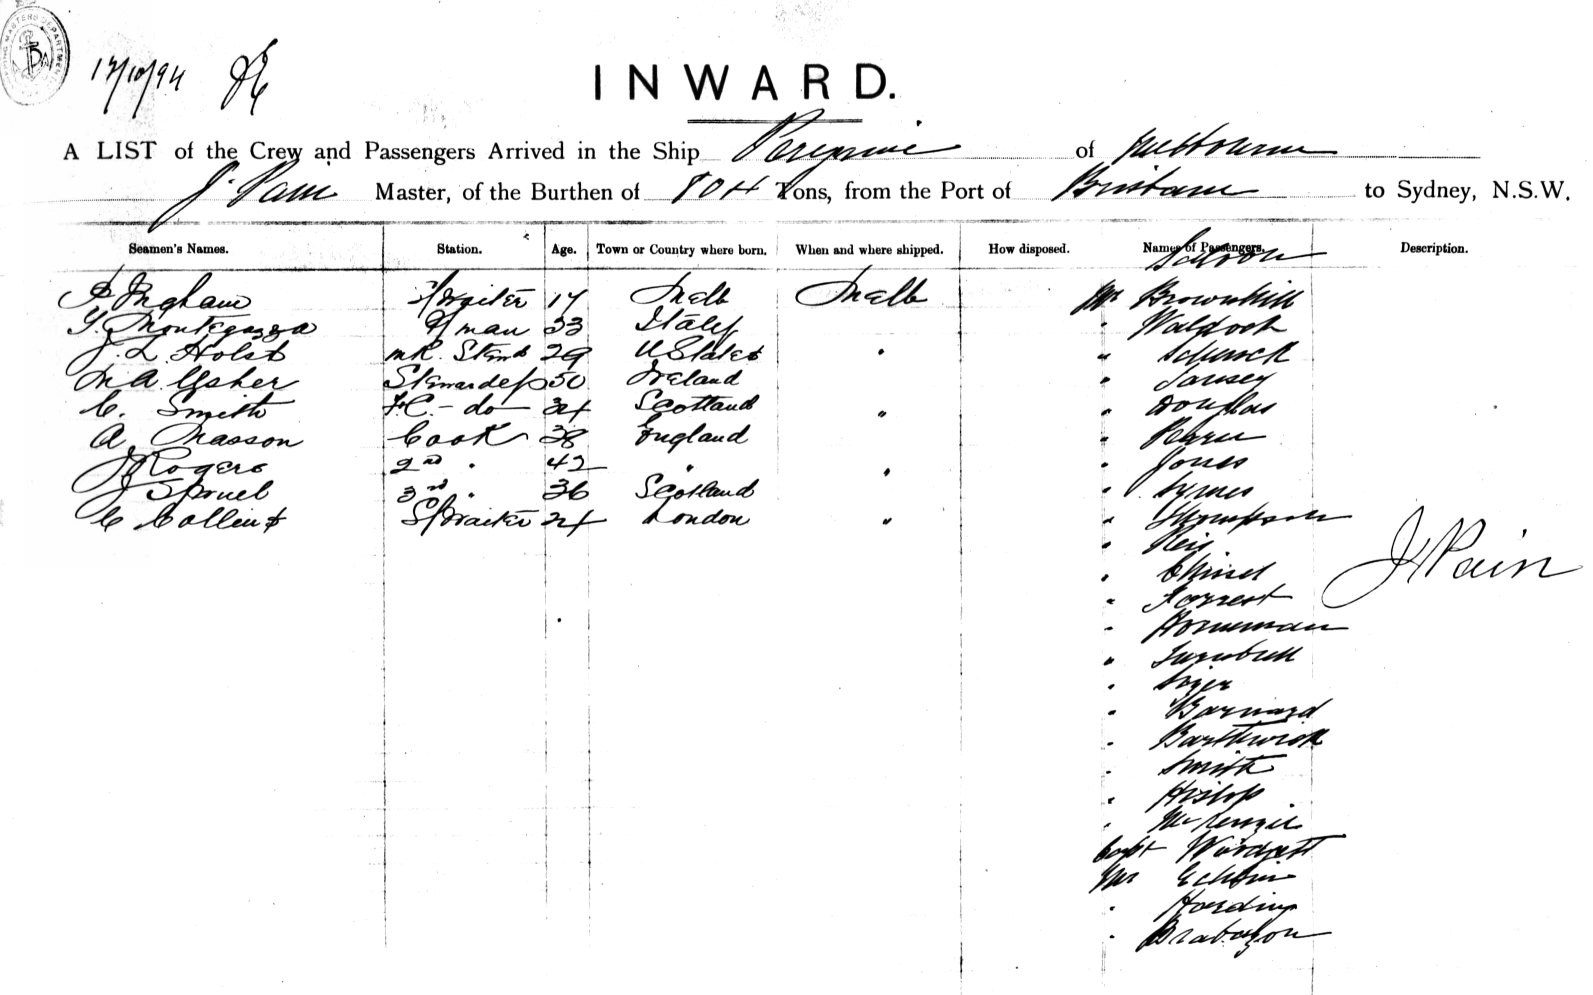 SHIPPING MASTERS DEPARTMENT
17/10/94
INWARD.
A LIST of the Crew and Passengers Arrived in the Ship Peregrine of Melbourne
J. Pain Master, of the Burthen of 804 Tons, from the Port of Brisbane to Sydney, N.S.W.
Seamen's Names. Station. Age. Town or Country where born. When and where shipped. How disposed. Names of Passengers. Description.
Saloon
Ingham F/Waiter 17 Melb Melb Mr Brownhill
Montegazza 33 Italy " Waldock
J. L. Holst 29 U States " " Schrock
M A. Usher Stewardess 50 Ireland "
C. Smith F.C. - do 34 Scotland " " Douglas
A Masson Cook 38 England "
J Rogers 2nd " 42 " " " Jones
J Spruel 3rd " 36 Scotland "
C Collins S/Waiter 24 London " " Thompson
" Reis
J Pain
"
" Forrest
" Horneman
" Turnbull
"
" Barnard
" Barthwick
" Smith
" Hislop
" McKenzie
Capt
Mr
" Harding
" Brabazon